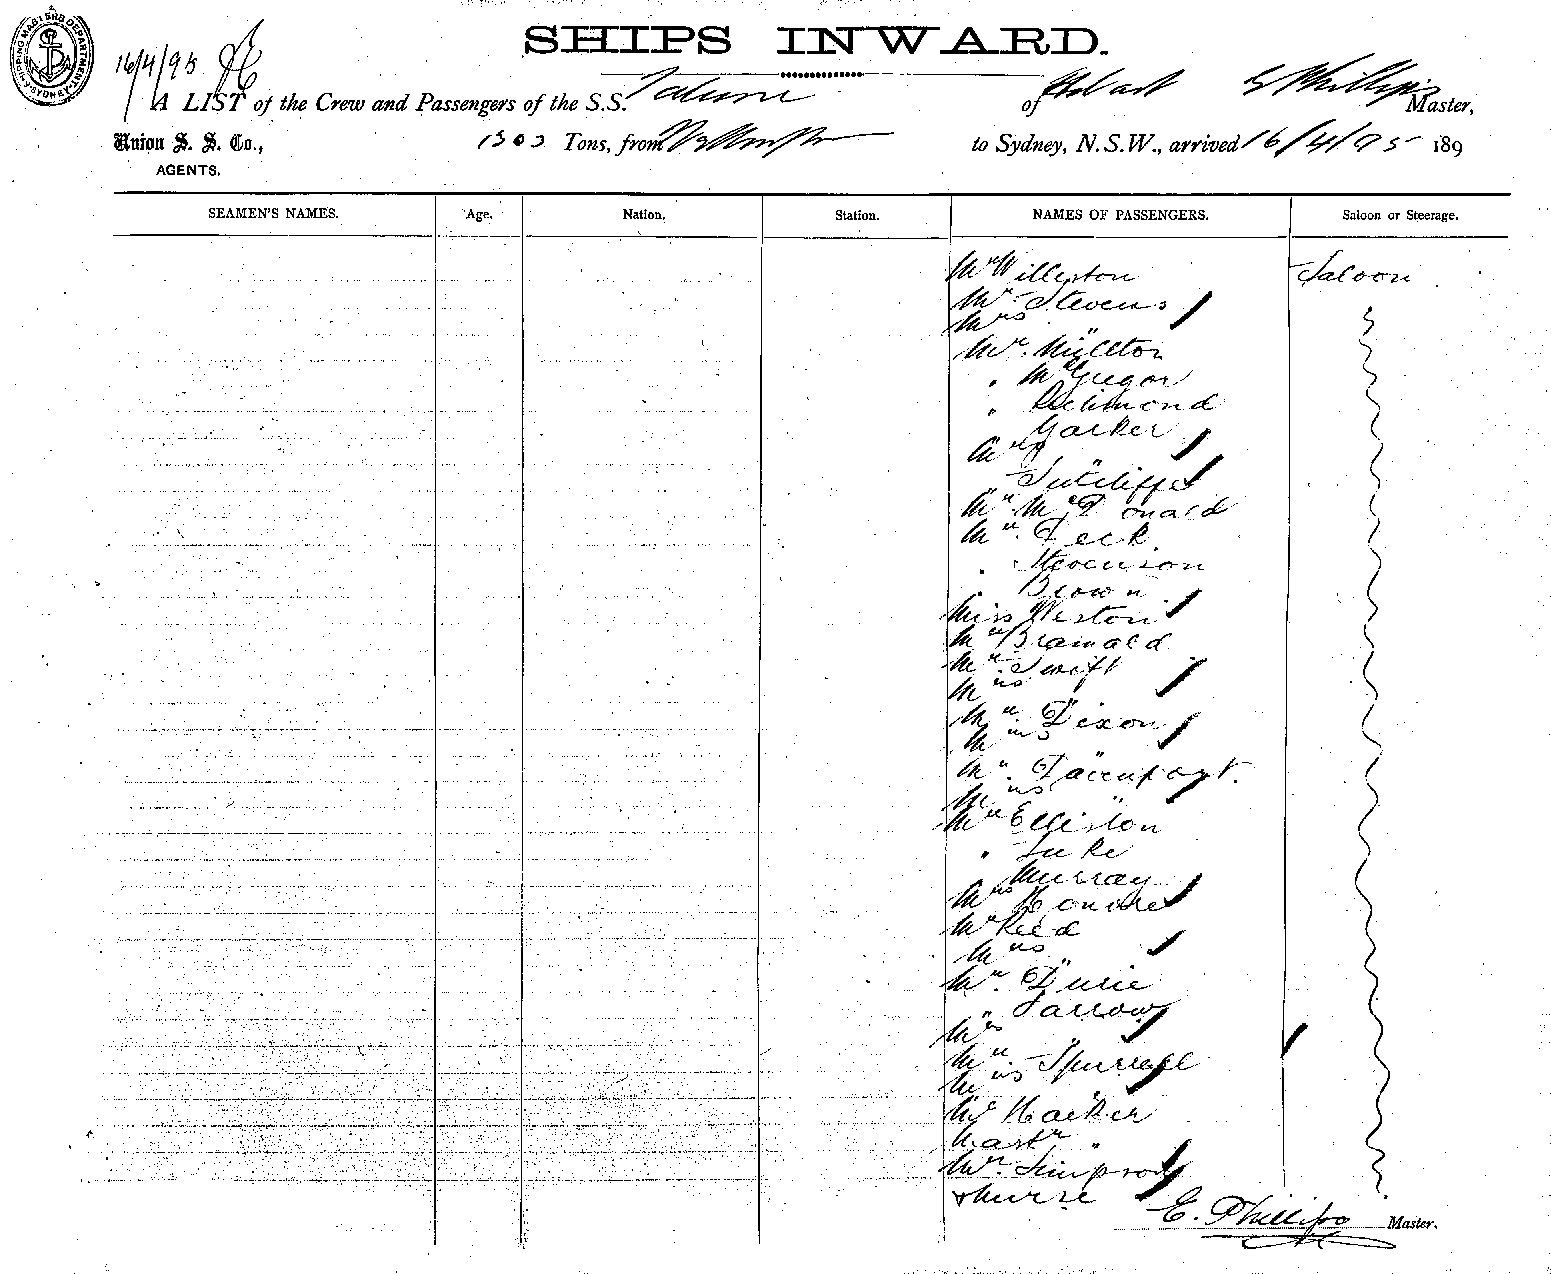 SHIPPING MASTERS DEPARTMENT SYDNEY
16/4/95
SHIPS INWARD.
A LIST of the Crew and Passengers of the S.S. of Hobart E Phillips Master,
Union S. S. Co., 1303 Tons, from to Sydney, N.S.W., arrived 16/4/95 189
AGENTS.
SEAMEN'S NAMES. Age. Nation. Station. NAMES OF PASSENGERS. Saloon or Steerage.
Mr Williston Saloon
Mr Stevens
Mrs "
Mr.
" McGregor
" Richmond
Mrs
" Sutcliffe
Mr McDonald
Mr Peck
" Stevenson
Brown
Miss Weston
Mr Bramald
Mr Swift
Mrs "
Mr Dixon
Mrs "
Mr. Davenport.
Mrs "
Mr Elliston
" Luke
Murray
Mrs
Mr Reed
Mrs "
Mr. Durie
" Farrow
Mrs "
Mr Spurrell
Mrs "
Mr Harker
Mastr "
Mr. Simpson
& nurse
E. Phillips Master.